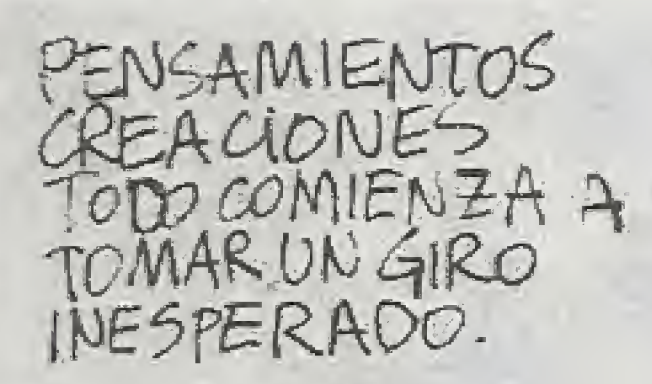 PENSAMIENTOS
CREACIONES
TODO COMIENZA A
TOMAR UN GIRO
INESPERADO.